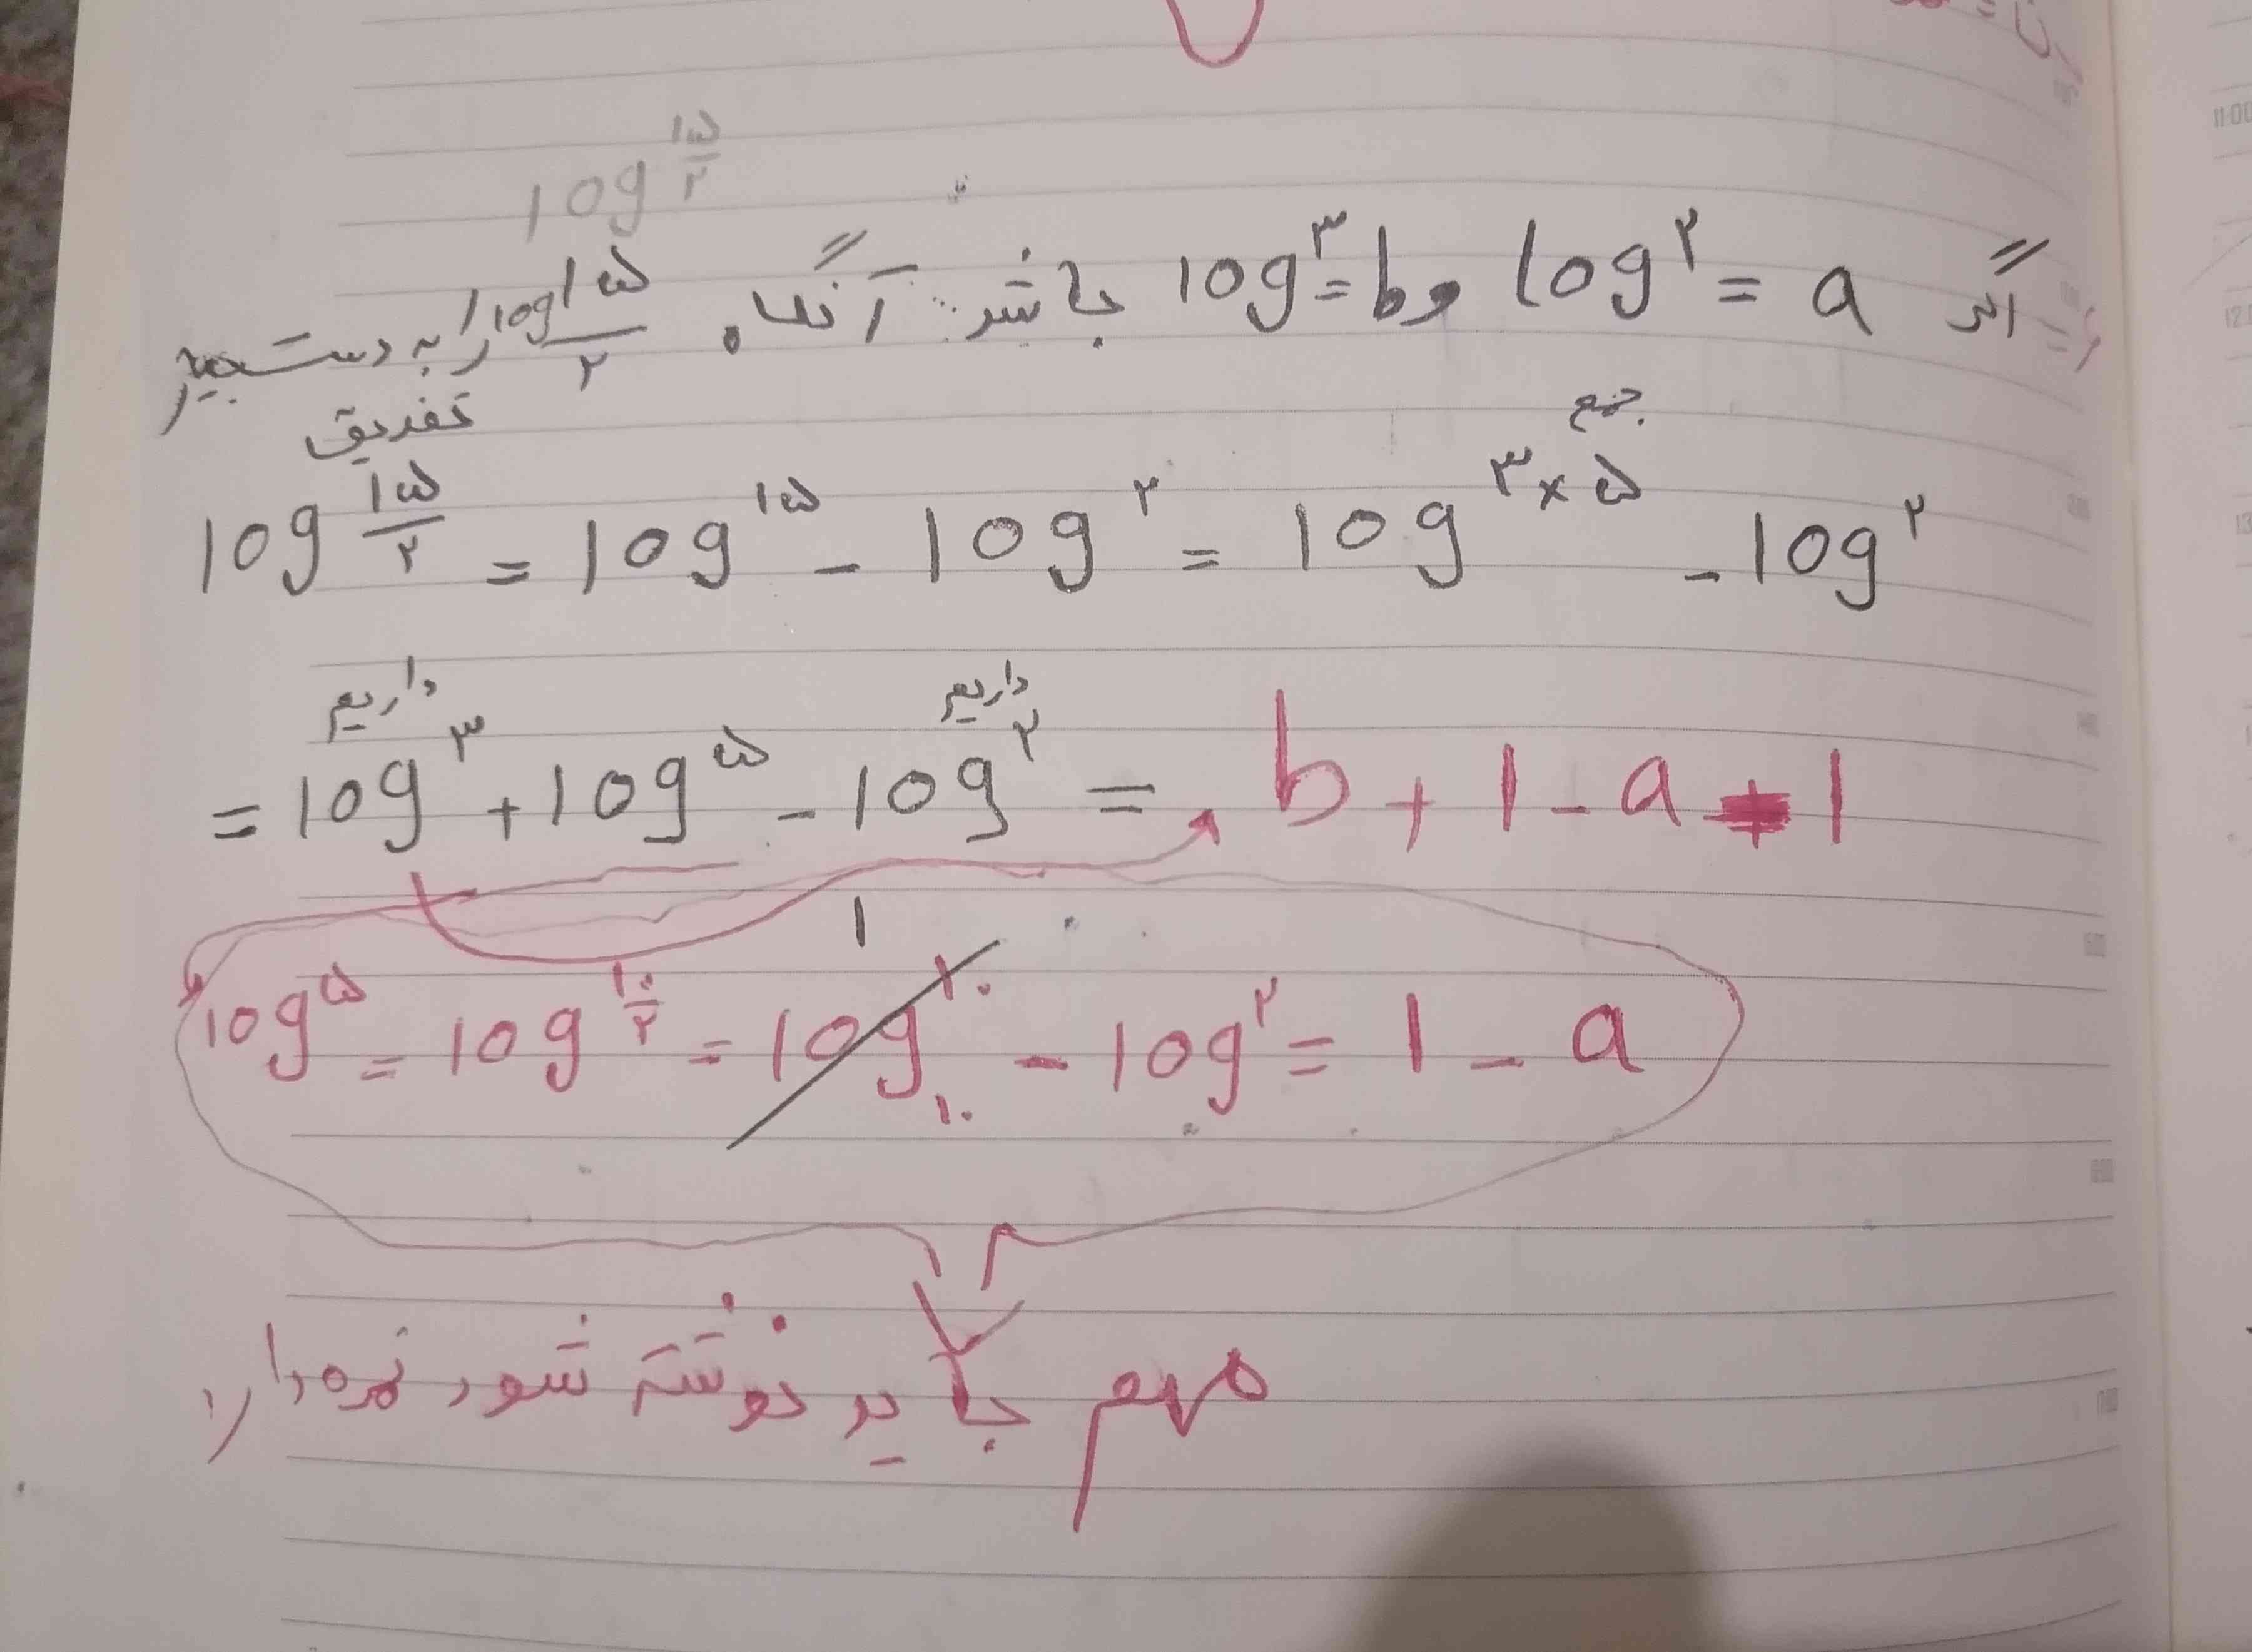 log ۱۵/۲
اگر log۲ = a و log۳ = b باشد آنگاه log ۱۵/۲ را به دست بیارید
تفریق جمع
log ۱۵/۲ = log۱۵ - log۲ = log۳×۵ - log۲
داریم داریم
= log۳ + log۵ - log۲ = b + 1 - a - 1
1
log۵ = log ۱۰/۲ = log۱۰ ۱۰ - log۲ = 1 - a
مهم باید نوشته شود نمره دارد